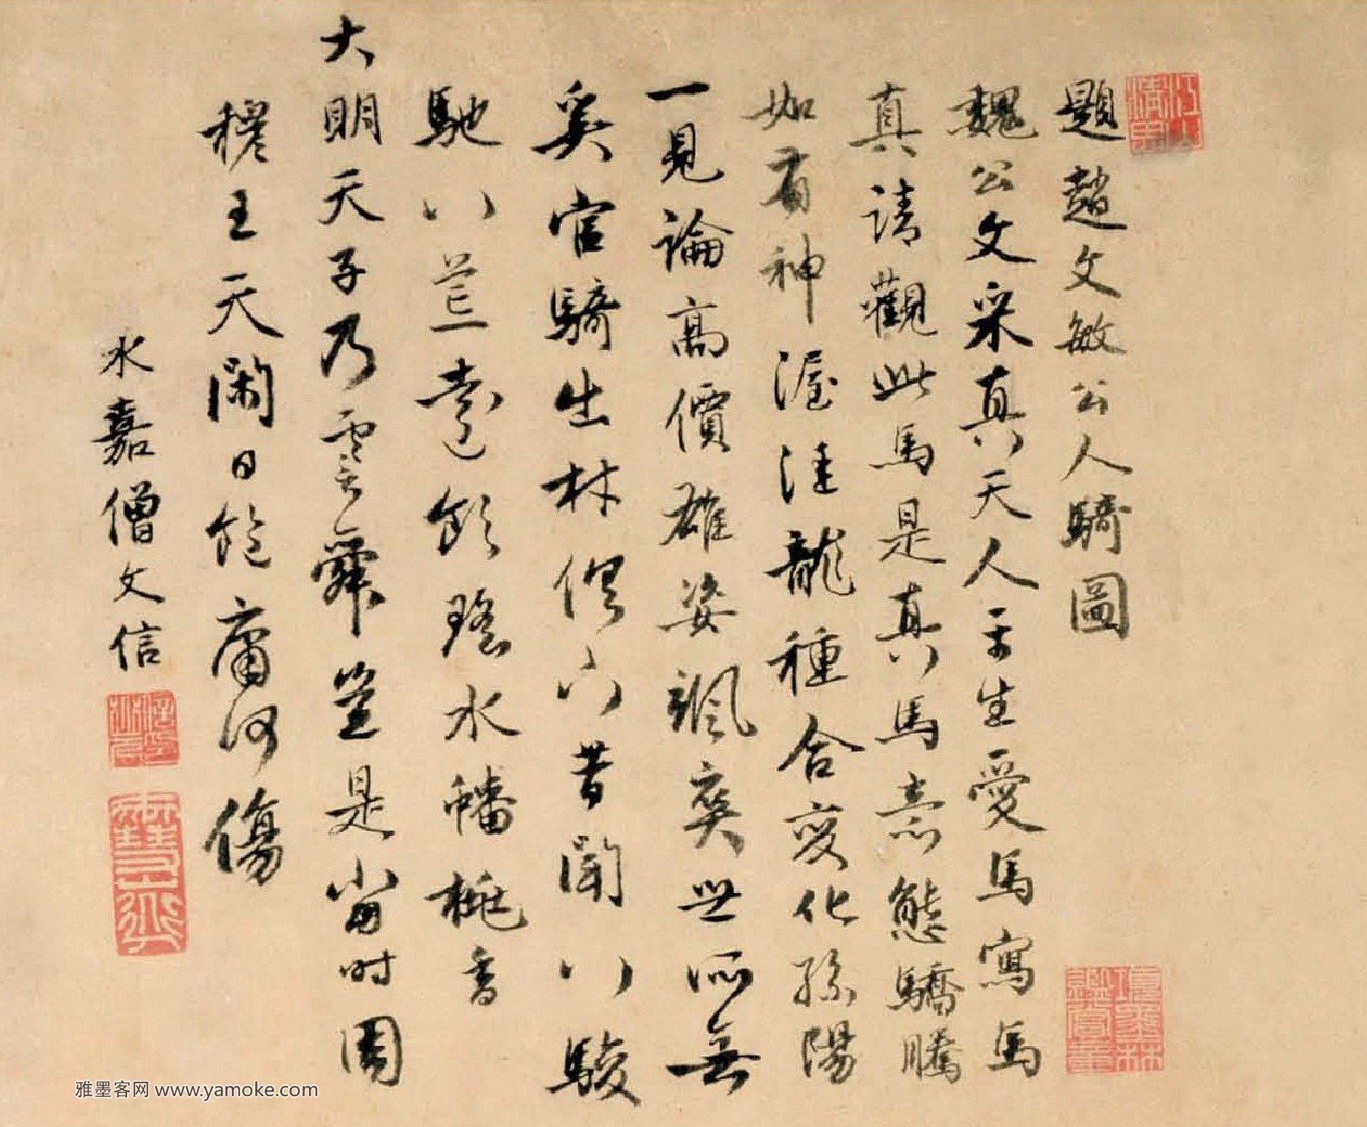 題趙文敏公人騎圖
魏公文采真天人平生愛馬寫馬
真請觀此馬是真馬意態驕騰
如有神渥洼龍種合變化孫陽
一見論高價雄姿颯爽世所無
奚官騎出林下昔聞八駿
馳八荒遠飲瑤水蟠桃香
大明天子乃虞舜豈是當時周
穆王天閑日飽庸何傷
永嘉僧文信
項墨林鑑賞章
雅墨客网 www.yamoke.com